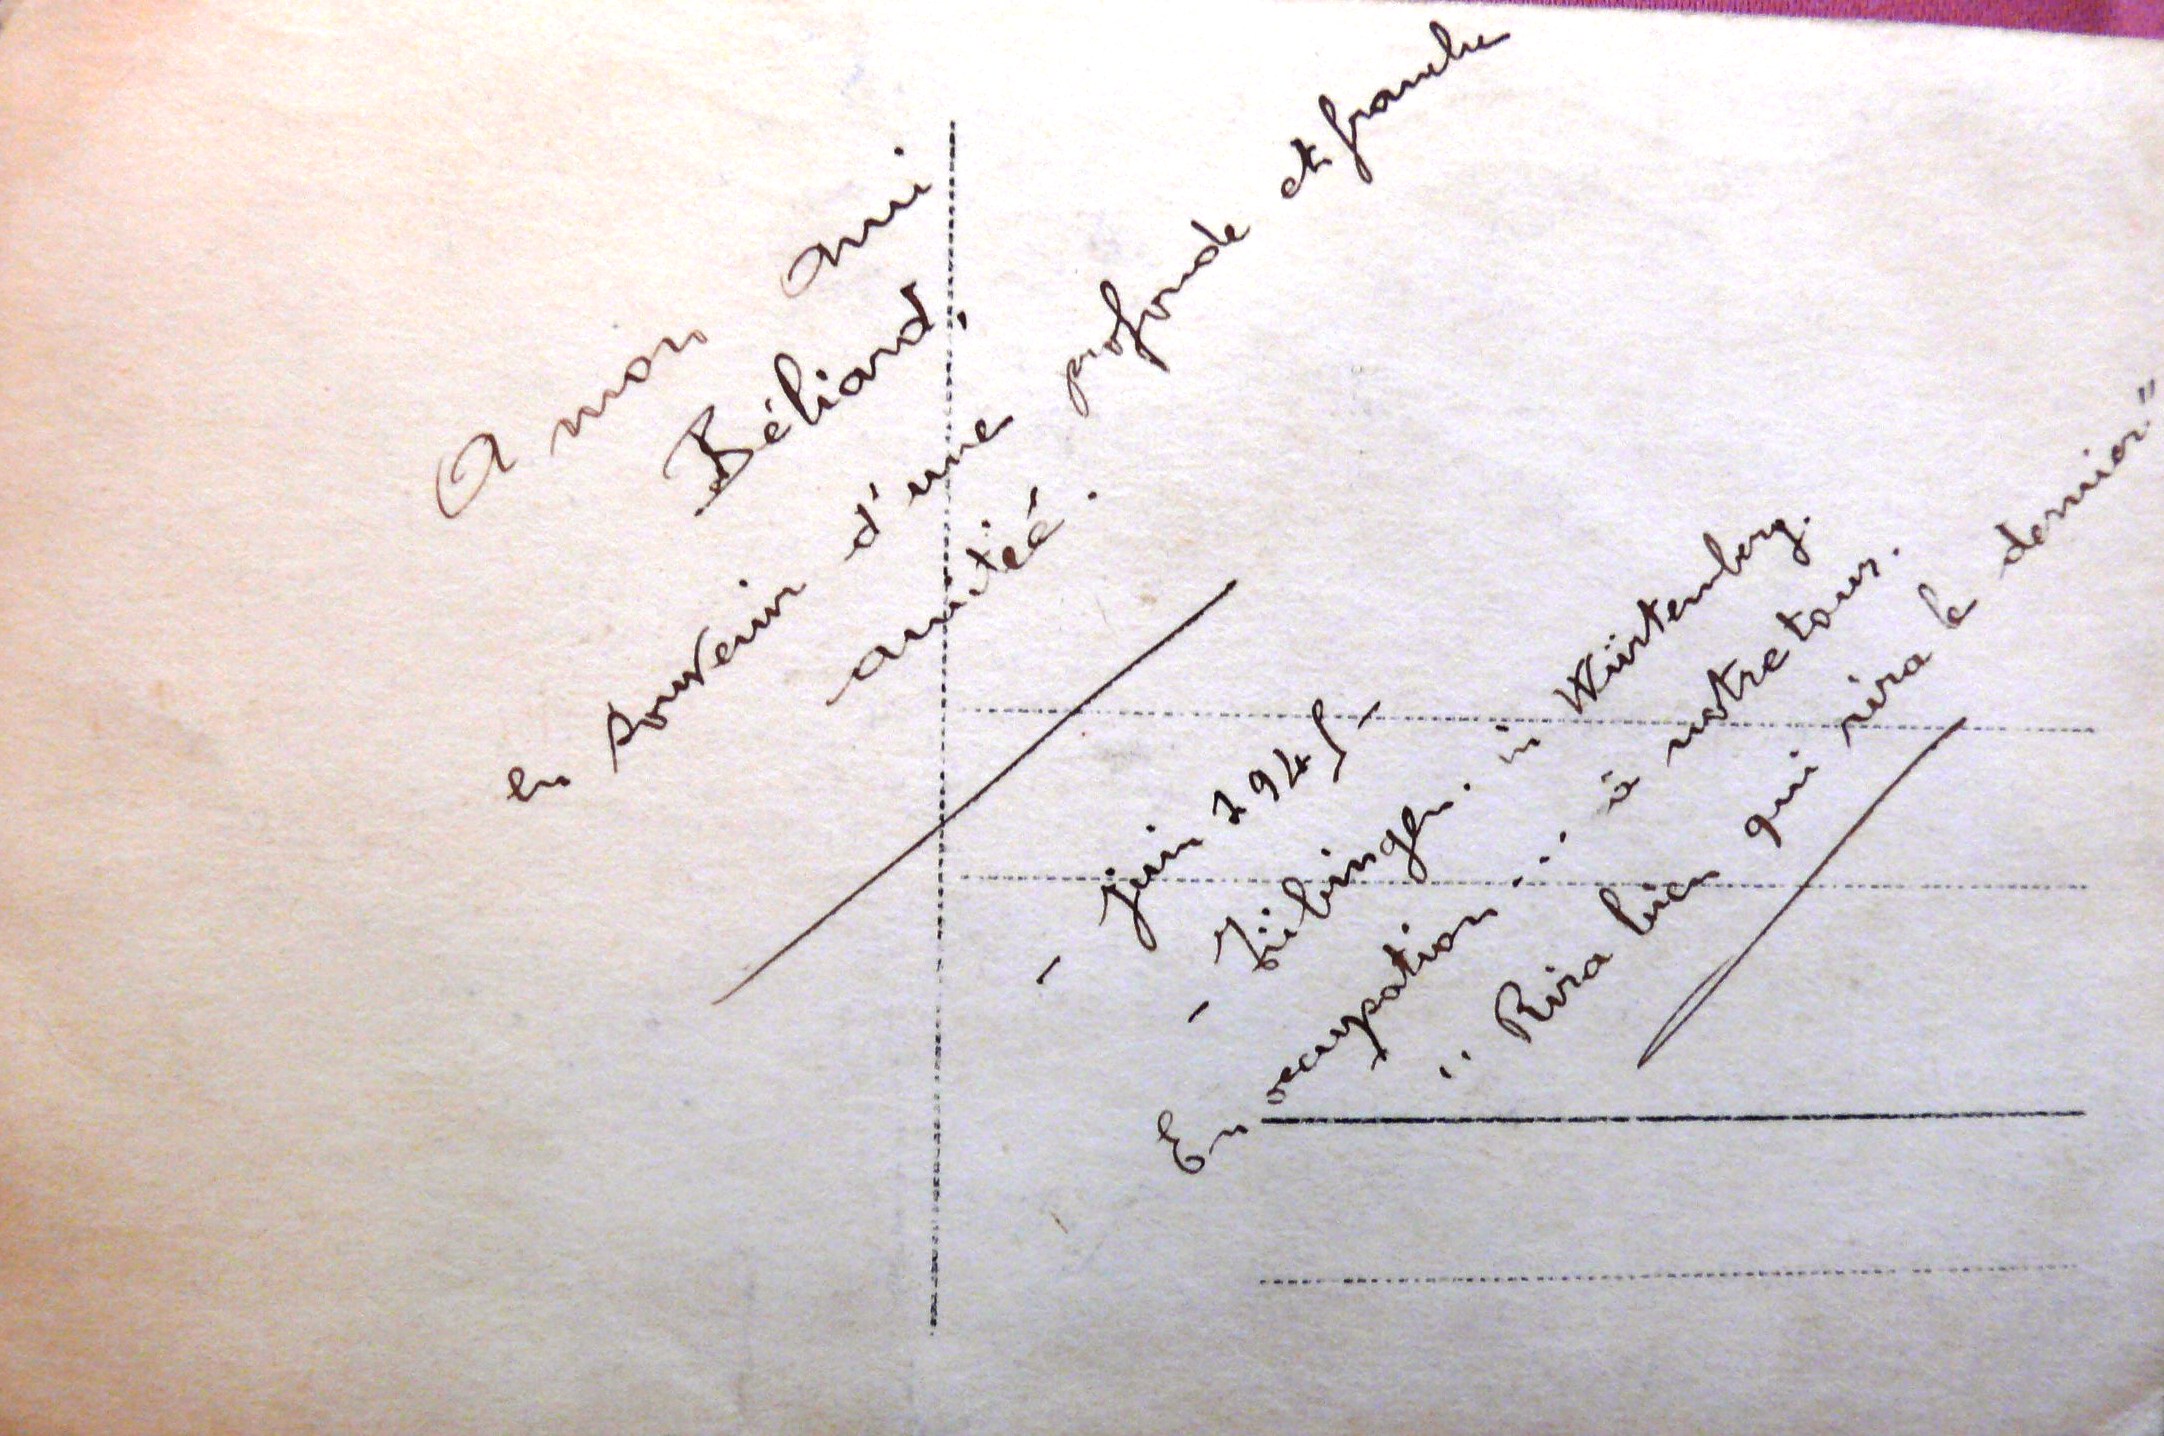 A mon ami
Béliard,
en souvenir d'une profonde et franche
amitié.
- Juin 1945 -
- Tübingen. in Würtemberg.
En occupation ... à notre tour.
"Rira bien qui rira le dernier"